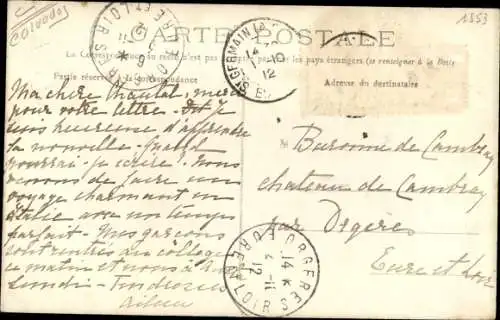 (Calvados)
1853
CARTE POSTALE
La Correspondance au recto n'est pas acceptée par tous les pays étrangers (se renseigner à la Poste)
Partie réservée à la correspondance
Adresse du destinataire
Ma chère Chantal, merci
pour votre lettre. Que je
suis heureuse d'apprendre
la nouvelle.
pourrai-je écrire? Nous
venons de faire un
voyage charmant en
Italie avec un temps
parfait. Mes garçons
sont rentrés au collège
ce matin et nous à
Lundi.
Baronne de Cambray
chateau de Cambray
par Orgères
Eure et Loir
ST GERMAIN
14 10
12
ORGERES
14 K
4-11
12
EURE ET LOIR